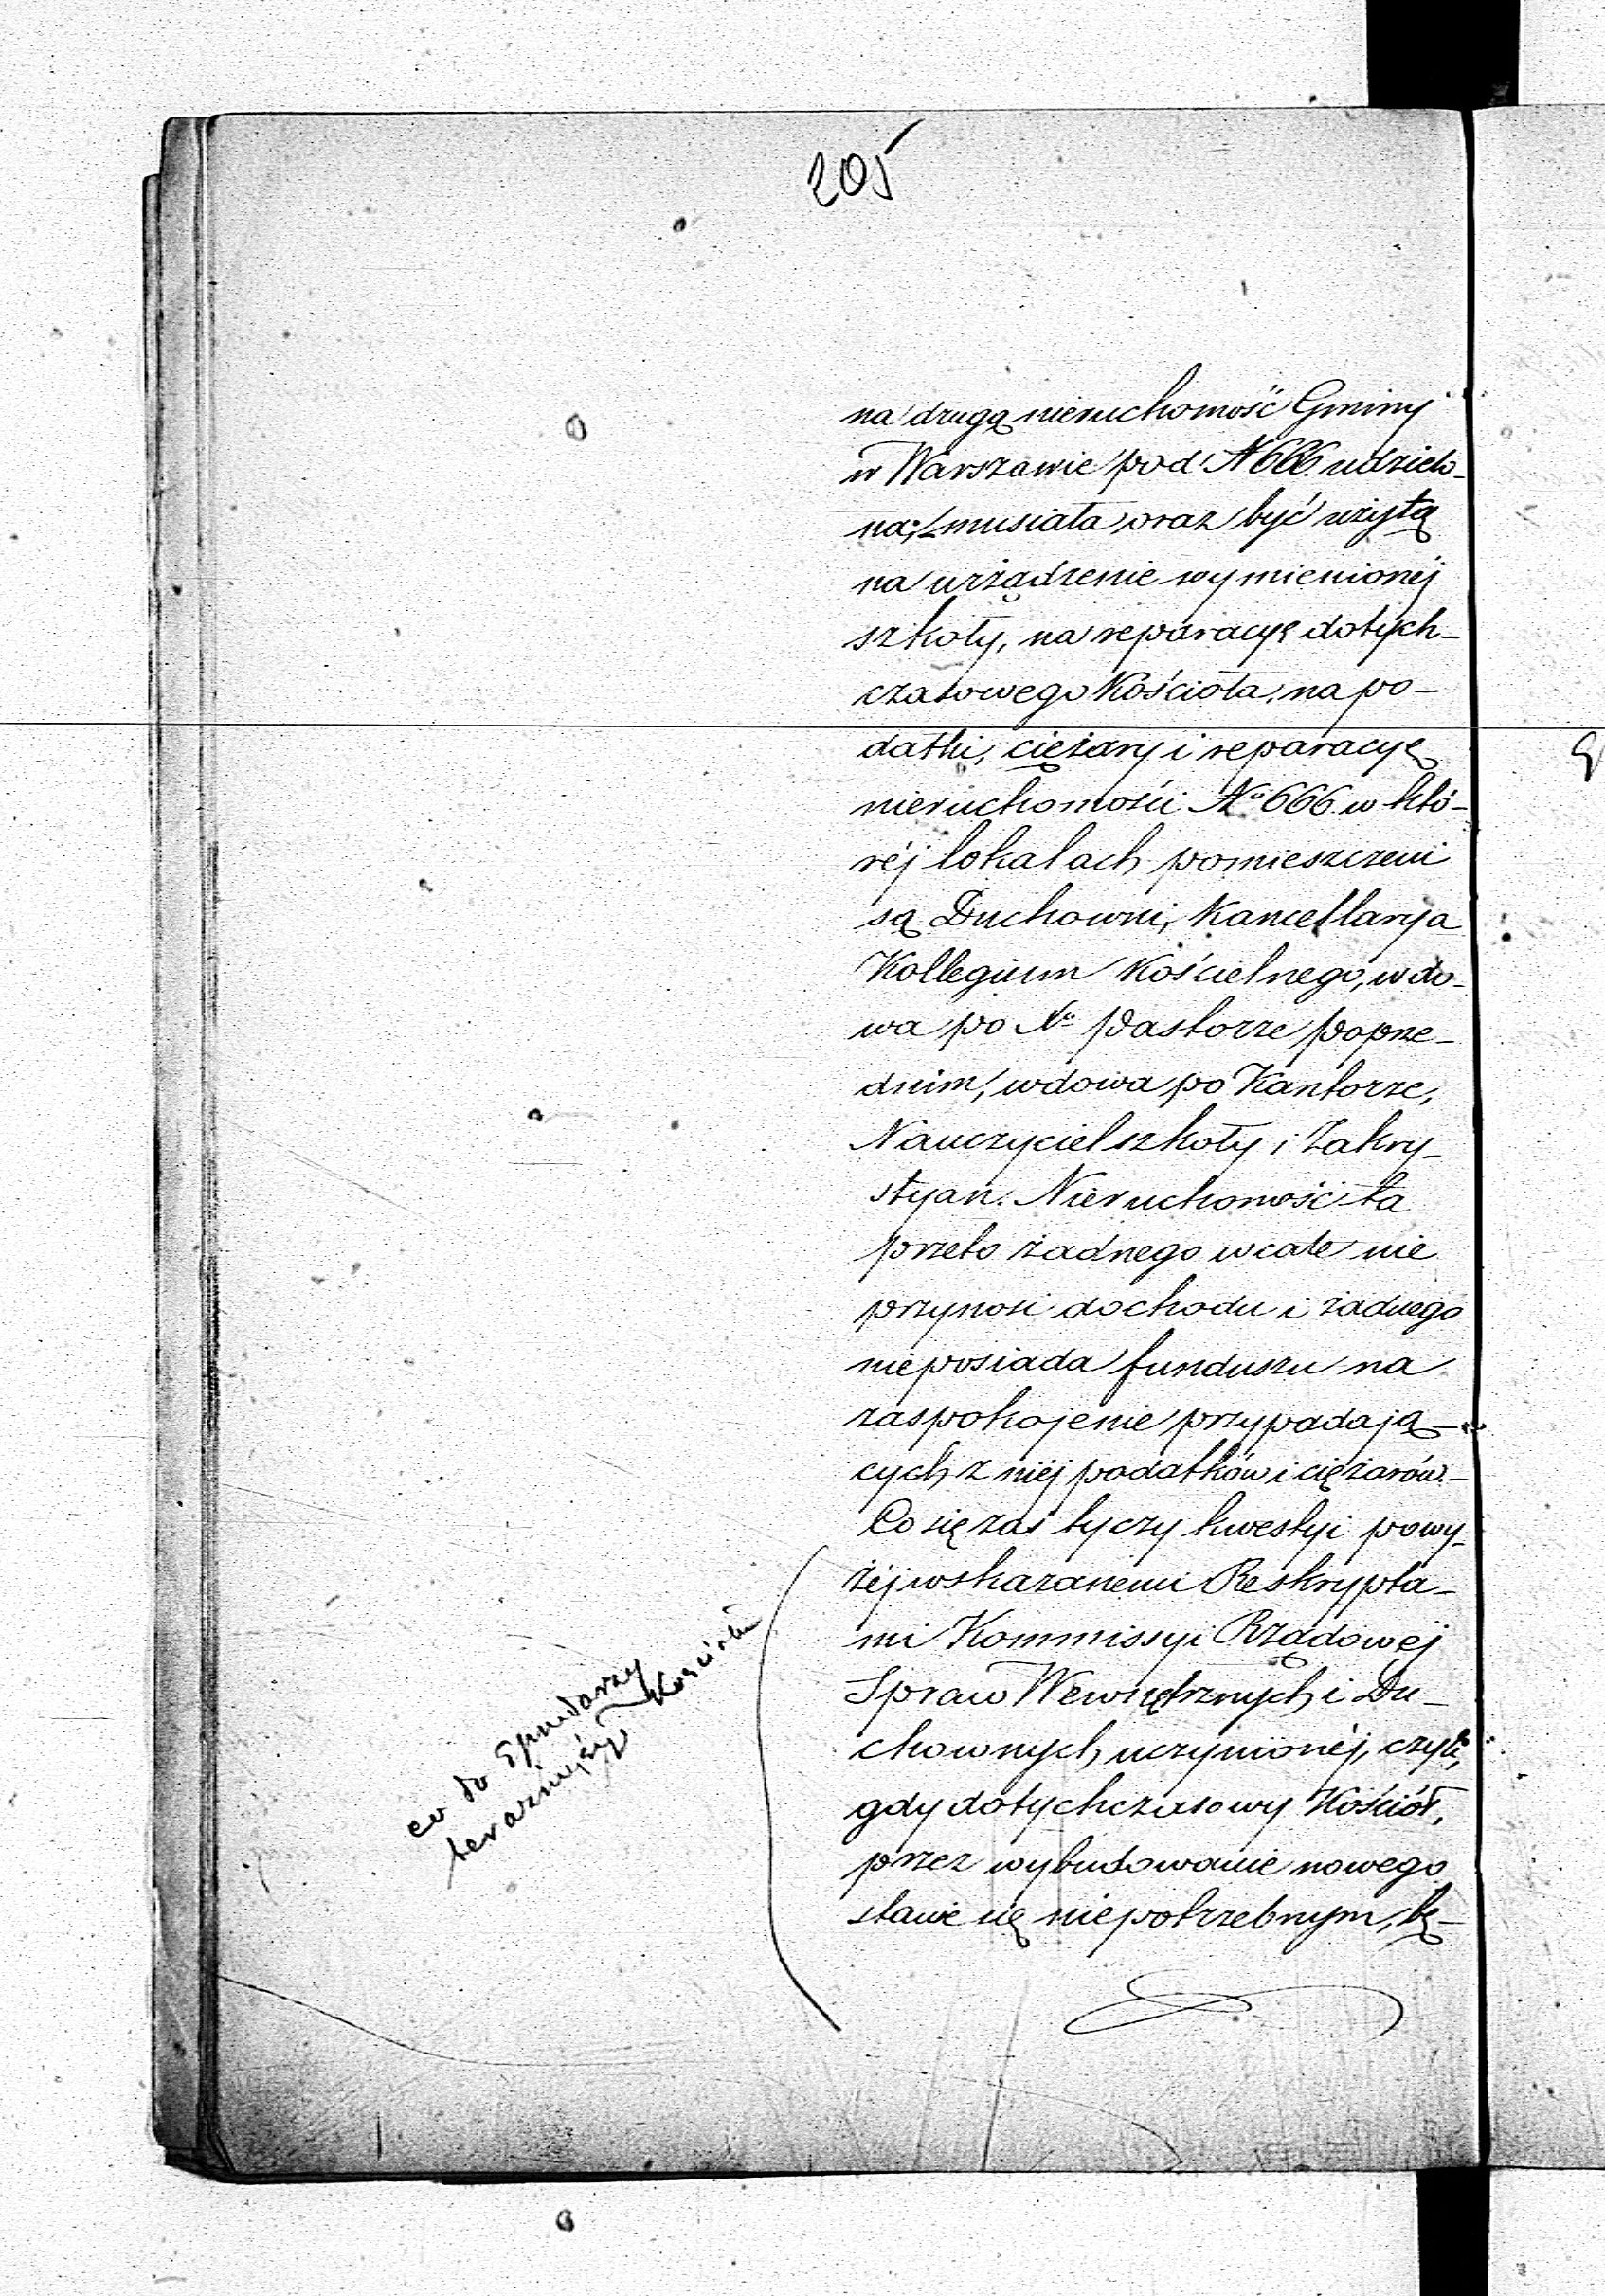 205
na drugą nieruchomość Gminy
w Warszawie pod N 666. udzielo-
na, musiała oraz być użytą
na urządzenie wymienionéj
szkoły, na reparacyę dotych-
czasowego Kościoła, na po-
datki, ciężary i reparacyę
nieruchomości No 666. w któ-
réj lokalach pomieszczeni
są Duchowni, Kancellarya
Kollegium Kościelnego, wdo-
wa po Pastorze poprze-
dnim, wdowa po Kantorze,
Nauczyciel szkoły i Zakry-
styan. Nieruchomość ta
przeto żadnego wcale nie
przynosi dochodu i żadnego
nieposiada funduszu na
zaspokojenie przypadają-
cych z niéj podatków i ciężarów.-
Co się zaś tyczy kwestyi powy-
żéj wskazanemi Reskrypta-
mi Kommissyi Rządowej
Spraw Wewnętrznych i Du-
chownych uczynionéj, czyli,
gdy dotychczasowy Kościół,
przez wybudowanie nowego
stanie się niepotrzebnym, bę-
co do sprzedarzy
teraźniejszego Kościoła